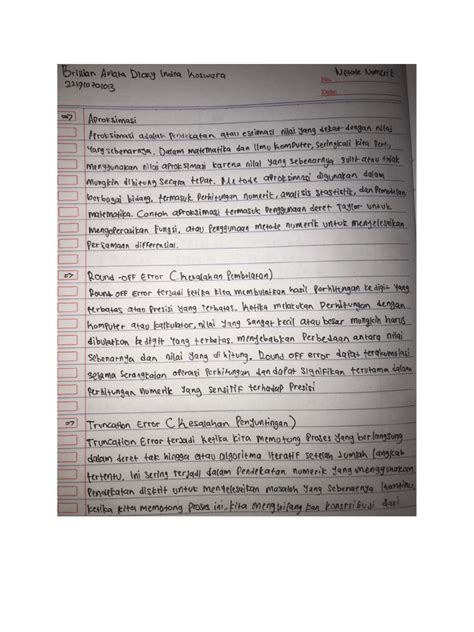 Brilian Ariata Dicky Indra Koswara Metode Numerik
No.
221910701013
Date:
Aproksimasi
Aproksimasi adalah Pendekatan atau estimasi nilai yang dekat dengan nilai
yang sebenarnya. Dalam matematika dan Ilmu komputer, seringkali kita perlu
menggunakan nilai aproksimasi karena nilai yang sebenarnya sulit atau tidak
mungkin dihitung secara tepat. Metode aproksimasi digunakan dalam
berbagai bidang, termasuk Perhitungan numerik, analisis statistik, dan Pemodelan
matematika. Contoh aproksimasi termasuk Penggunaan deret Taylor untuk
mengoperasikan Fungsi, atau Penggunaan metode numerik untuk menyelesaikan
Persamaan differensial.
Round-off Error (Kesalahan Pembulatan)
Round off Error terjadi ketika kita membulatkan hasil Perhitungan ke digit yang
terbatas atau Presisi yang terbatas. Ketika melakukan Perhitungan dengan
komputer atau kalkulator, nilai yang sangat kecil atau besar mungkin harus
dibulatkan ke digit yang terbatas, menyebabkan Perbedaan antara nilai
sebenarnya dan nilai yang dihitung. Round off error dapat terakumulasi
selama serangkaian operasi Perhitungan dan dapat signifikan terutama dalam
Perhitungan numerik yang sensitif terhadap Presisi
Truncation Error (Kesalahan Penyuntingan)
Truncation Error terjadi ketika kita memotong Proses yang berlangsung
dalam deret tak hingga atau algoritma iteratif setelah Jumlah langkah
tertentu. Ini sering terjadi dalam Pendekatan numerik yang menggunakan
Pendekatan diskrit untuk menyelesaikan masalah yang sebenarnya kontinu.
ketika kita memotong Proses ini, kita menghilangkan kontribusi dari